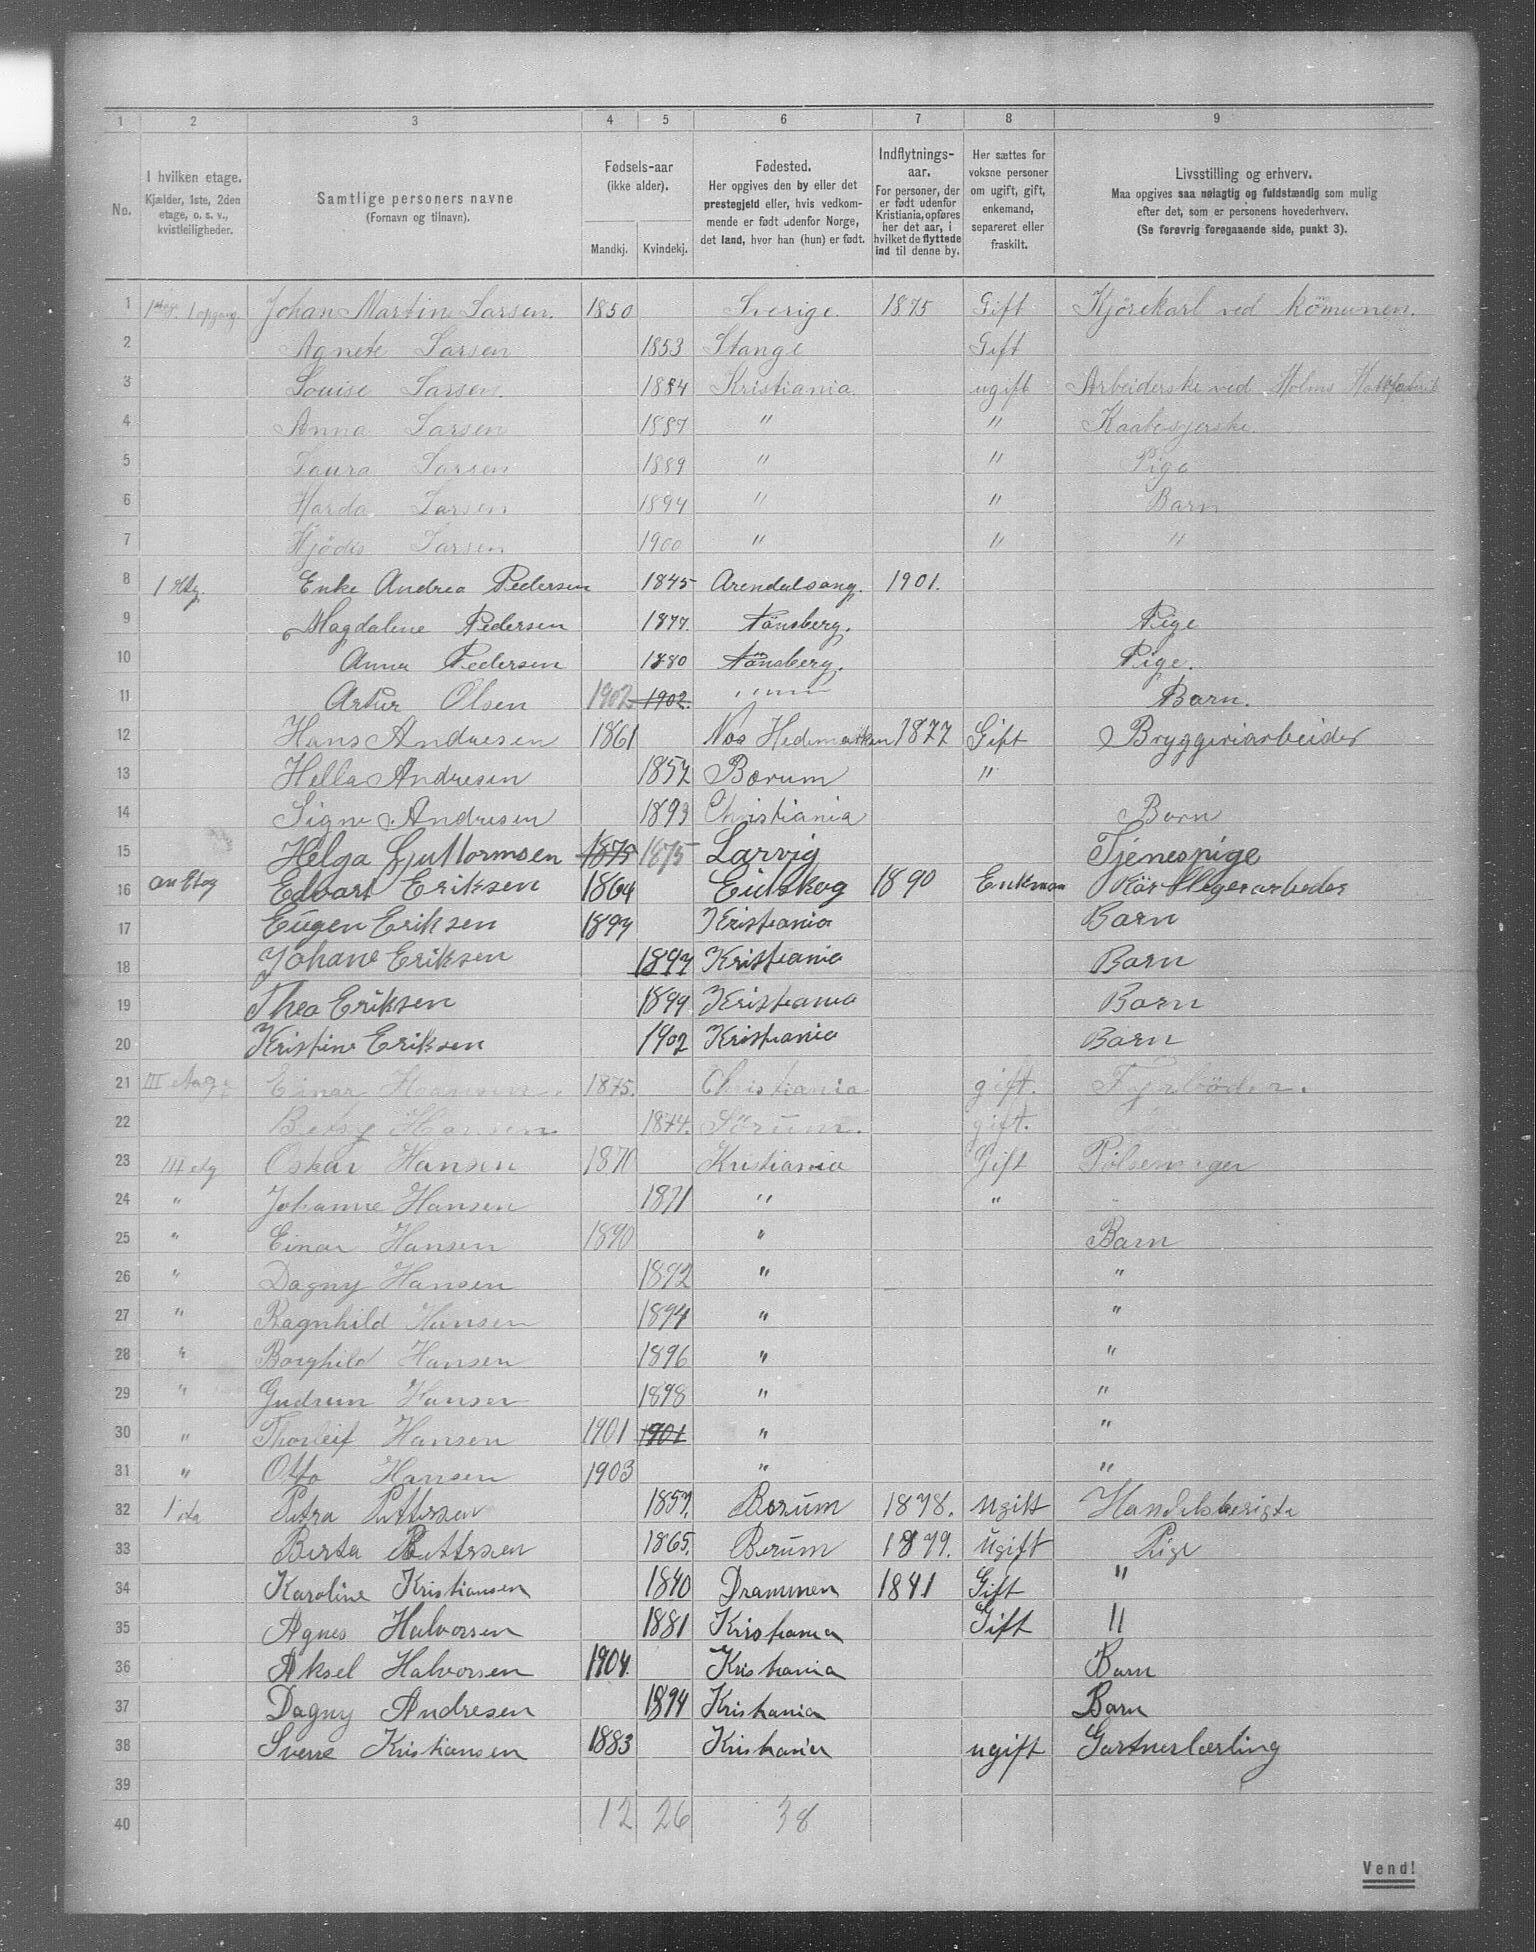 1 2 3 4 5 6 7 8 9
No.
I hvilken etage.
Kjælder, 1ste, 2den etage, o. s. v., kvistleiligheder.
Samtlige personers navne
(Fornavn og tilnavn).
Fødsels-aar
(ikke alder).
Mandkj. Kvindekj.
Fødested.
Her opgives den by eller det prestegjeld eller, hvis vedkommende er født udenfor Norge, det land, hvor han (hun) er født.
Indflytnings-aar.
For personer, der er født udenfor Kristiania, opføres her det aar, i hvilket de flyttede ind til denne by.
Her sættes for voksne personer om ugift, gift, enkemand, separeret eller fraskilt.
Livsstilling og erhverv.
Maa opgives saa nøiagtig og fuldstændig som mulig efter det, som er personens hovederhverv.
(Se forøvrig foregaaende side, punkt 3).
1 1 etg. 1 opgang. Johan Martin Larsen. 1850 Sverige. 1875 Gift Kjørekarl ved komunen.
2 Agnete Larsen 1853 Stange Gift
3 Louise Larsen. 1884 Kristiania. ugift Arbeiderske ved Holms Hatfabrik
4 Anna Larsen 1887 " " Kaabesyerske
5 Laura Larsen 1889 " " Pige
6 Harda Larsen 1894 " " Barn
7 Hjødis Larsen 1900 " " "
8 1 Etg. Enke Andrea Pedersen 1845 Arendalsang. 1901.
9 Magdalene Pedersen 1877. Tønsberg. Pige
10 Anna Pedersen 1880 Tønsberg. Pige.
11 Artur Olsen 1902 1902. " " Barn.
12 Hans Andresen 1861 Nos Hedemarken 1877 Gift Bryggeriarbeider
13 Hella Andresen 1857 Bærum "
14 Signe Andresen 1893 Christiania Barn
15 Helga Guttormsen 1875 1875 Larvig Tjenespige
16 an Etag Edvart Eriksen 1864 Eidskog 1890 Enkman
17 Eugen Eriksen 1894 Kristiania Barn
18 Johane Eriksen 1897 Kristiania Barn
19 Thea Eriksen 1899 Kristiania Barn
20 Kristine Eriksen 1902 Kristiania Barn
21 III etage Einar Hansen. 1875. Christiania gift. Fyrbøder.
22 Betsy Hansen 1874. Sørum. gift.
23 III etg Oskar Hansen 1870 Kristiania Gift Pølsemager
24 " Johanne Hansen 1871 " "
25 " Einar Hansen 1890 " Barn
26 " Dagny Hansen 1892 " "
27 " Ragnhild Hansen 1894 " "
28 " Borghild Hansen 1896 " "
29 " Gudrun Hansen 1898 " "
30 " Thorleif Hansen 1901 1901 " "
31 " Otto Hansen 1903 " "
32 1 eta Petra Pettersen 1857. Berum 1878. Ugift
33 Berta Pettersen 1865. Berum 1879. Ugift Pige
34 Karoline Kristiansen 1840 Drammen 1841 Gift "
35 Agnes Halvorsen 1881 Kristiania Gift "
36 Aksel Halvorsen 1904. Kristiania Barn
37 Dagny Andresen 1894 Kristiania Barn
38 Sverre Kristiansen 1883 Kristiania ugift Gartnerlærling
39
40 12 26 38
Vend!